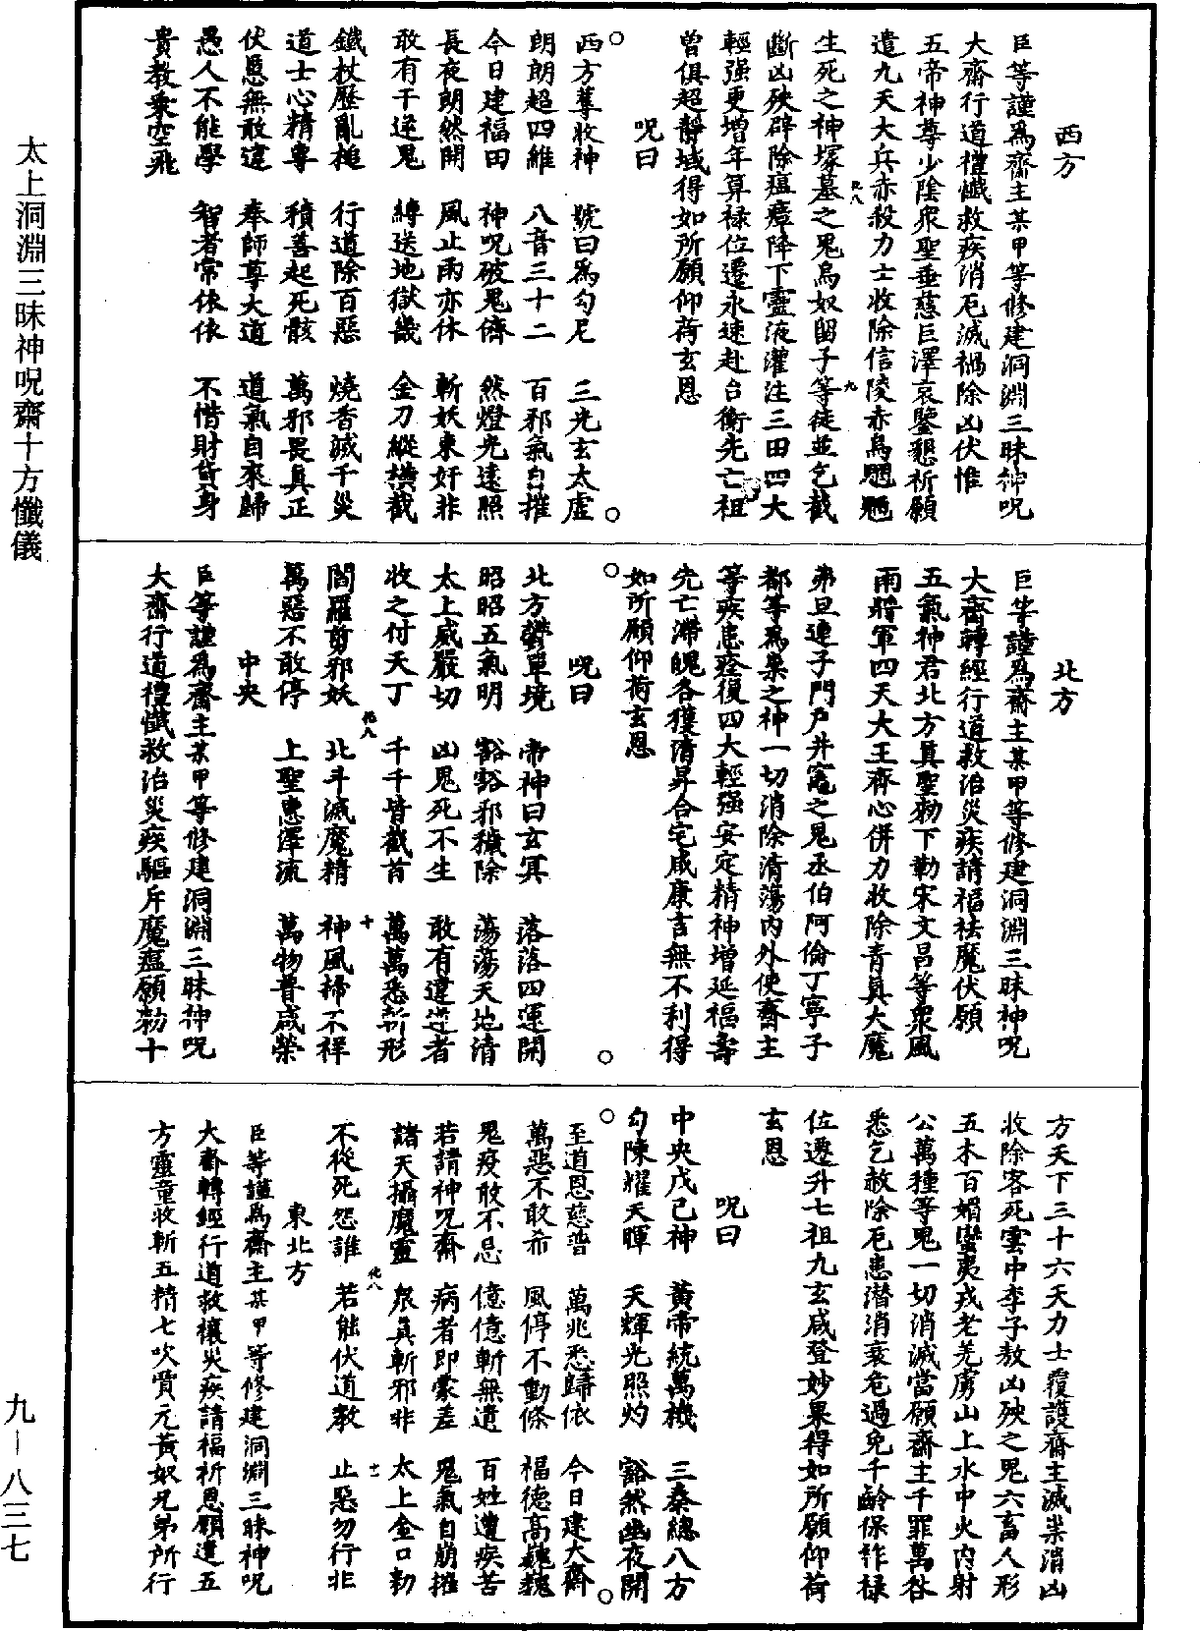 西方
臣等謹為齋主某甲等修建洞淵三昧神呪
大齋行道禮懺救疾消厄滅禍除凶伏惟
五帝神尊少陰眾聖垂慈巨澤哀鑒懇祈願
遣九天大兵赤殺力士收除信陵赤烏魍魎
生死之神塚墓之鬼烏奴留子等徒並乞截
斷凶殃辟除瘟瘴降下靈液灌注三田四大
輕強更增年算祿位遷永速赴台衡先亡祖
曾俱超靜域得如所願仰荷玄恩
呪曰
西方蓐收神 號曰為勾尼 三光玄太虛
朗朗超四維 八音三十二 百邪氣自摧
今日建福田 神呪破鬼儕 然燈光遠照
長夜朗然開 風止雨亦休 斬妖東奸非
敢有干逆鬼 縛送地獄畿 金刀縱橫截
鐵杖歷亂搥 行道除百惡 燒香滅千災
道士心精專 積善起死骸 萬邪畏真正
伏愿無敢違 奉師尊大道 道氣自來歸
愚人不能學 智者常依依 不惜財貨身
貴教眾空飛
北方
臣等謹為齋主某甲等修建洞淵三昧神呪
大齋轉經行道救治災疾請福祛魔伏願
五氣神君北方真聖勑下勒宋文昌等眾風
雨將軍四天大王齊心併力收除青真大魔
弗旦連子門戶井竈之鬼丞伯阿倫丁寧子
都等為祟之神一切消除清蕩內外使齋主
等疾患痊復四大輕強安定精神增延福壽
先亡滯魄各獲清昇合宅咸康吉無不利得
如所願仰荷玄恩
呪曰
北方鬱單境 帝神曰玄冥 落落四運開
昭昭五氣明 豁豁邪穢除 蕩蕩天地清
太上威嚴切 凶鬼死不生 敢有違逆者
收之付天丁 千千皆截首 萬萬悉斬形
閻羅剪邪妖 北斗滅魔精 神風掃不祥
萬惡不敢停 上聖惠澤流 萬物普咸榮
中央
臣等謹為齋主某甲等修建洞淵三昧神呪
大齋行道禮懺救治災疾驅斥魔瘟願勑十
方天下三十六天力士覆護齋主滅祟消凶
收除客死雲中李子敖凶殃之鬼六畜人形
五木百媚蠻夷戎老羌虜山上水中火內射
公萬種等鬼一切消滅當願齋主千罪萬咎
悉乞赦除厄患潛消衰危過免千齡保祚祿
位遷升七祖九玄咸登妙果得如所願仰荷
玄恩
呪曰
中央戊己神 黃帝統萬機 三秦總八方
勾陳耀天暉 天輝光照灼 豁然幽夜開
至道恩慈普 萬兆悉歸依 今日建大齋
萬惡不敢希 風停不動條 福德高巍巍
鬼疫敢不忌 億億斬無遺 百姓遭疾苦
若請神呪齋 病者即蒙差 鬼氣自崩摧
諸天攝魔靈 眾真斬邪非 太上金口勑
不從死怨誰 若能伏道教 止惡勿行非
東北方
臣等謹為齋主某甲等修建洞淵三昧神呪
大齋轉經行道救禳災疾請福祈恩願遣五
方靈童收斬五精七吹質元黃奴兄弟所行
太上洞淵三昧神呪齋十方懺儀
九—八三七